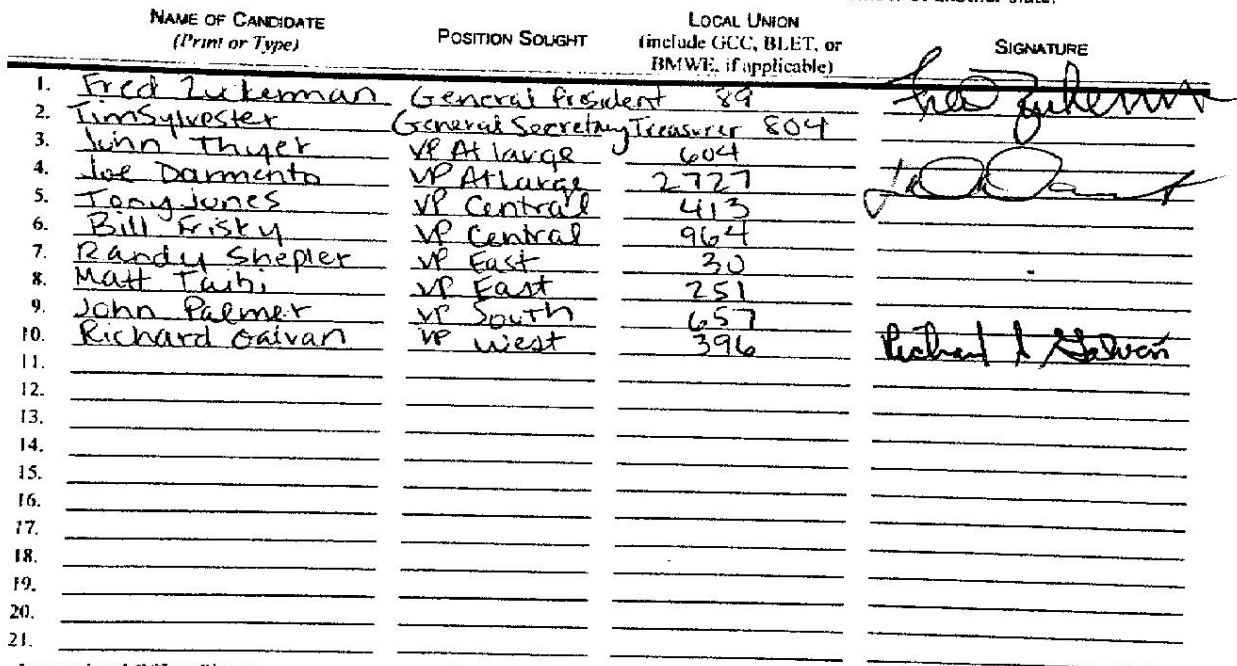 NAME OF CANDIDATE
(Print or Type)
POSITION SOUGHT
LOCAL UNION
(include GCC, BLET, or
BMWE, if applicable)
SIGNATURE
1. Fred Zukerman General President 89 Fred Zukerman
2. Tim Sylvester General Secretary Treasurer 804
3. John Thyer VP At large 604
4. Joe Darmento VP At Large 2727
5. Tony Jones VP Central 413
6. Bill Frisky VP Central 964
7. Randy Shepler VP East 30
8. Matt Taibi VP East 251
9. John Palmer VP South 657
10. Richard Galvan VP West 396 Richard Galván
11.
12.
13.
14.
15.
16.
17.
18.
19.
20.
21.